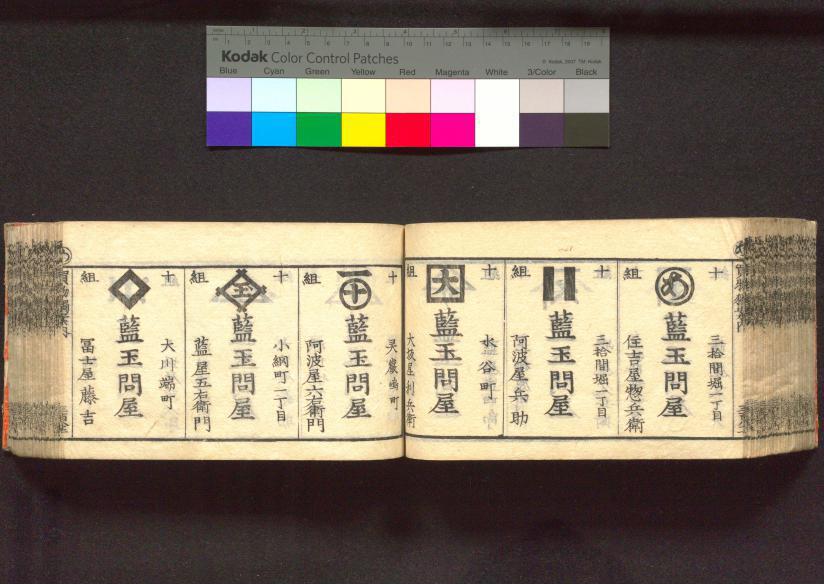 Kodak Color Control Patches
© Kodak, 2007 TM: Kodak
Blue Cyan Green Yellow Red Magenta White 3/Color Black
十組
三拾間堀一丁目
め
藍玉問屋
住吉屋惣兵衛
十組
三拾間堀一丁目
藍玉問屋
阿波屋兵助
十組
水谷町
大
藍玉問屋
大坂屋利兵衛
十組
霊巌嶋町
十
藍玉問屋
阿波屋六右衛門
十組
小網町二丁目
藍玉問屋
藍屋五右衛門
十組
大川端町
藍玉問屋
冨士屋藤吉